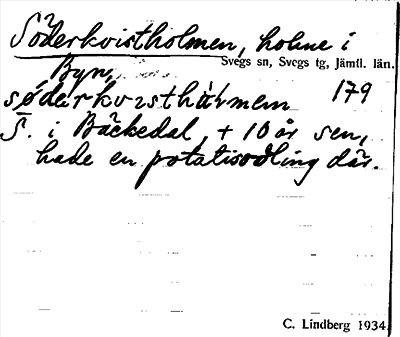 Söderkvistholmen, holme i
Svegs sn, Svegs tg, Jämtl. län.
Byn,
179
sødarkvısthärmem
S. i Bäckedal, + 10 år sen,
hade en potatisodling där.
C. Lindberg 1934.